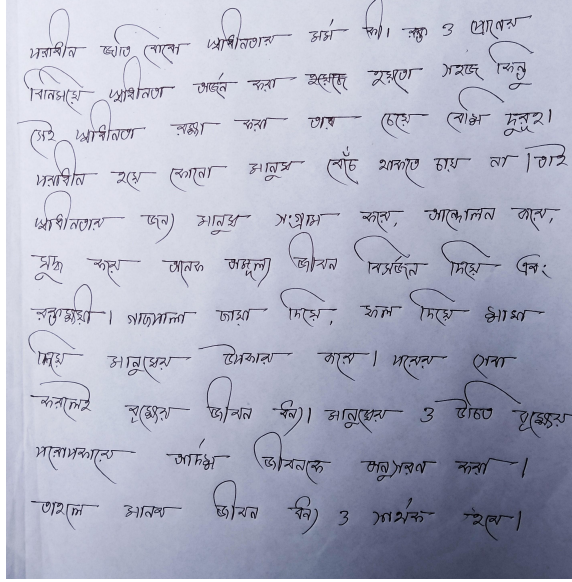 পরাধীন জাতি বোঝে স্বাধীনতার মর্ম কী। রক্ত ও প্রাণের
বিনিময়ে স্বাধীনতা অর্জন করা হয়েছে হয়তো সহজে কিন্তু
সেই স্বাধীনতা রক্ষা করা তার চেয়ে বেশি দুরূহ।
পরাধীন হয়ে কোনো মানুষ বেঁচে থাকতে চায় না। তাই
স্বাধীনতার জন্য মানুষ সংগ্রাম করে, আন্দোলন করে,
যুদ্ধ করে অনেক অমূল্য জীবন বিসর্জন দিয়ে এবং
রক্তক্ষয়ী। গাছপালা ছায়া দিয়ে, ফল দিয়ে
দিয়ে মানুষের উপকার করে। পরের সেবা
করলেই বৃক্ষের জীবন ধন্য। মানুষের ও উচিত বৃক্ষের
পরোপকারে আদর্শ জীবনকে অনুসরণ করা।
তাহলে মানব জীবন ধন্য ও সার্থক হবে।